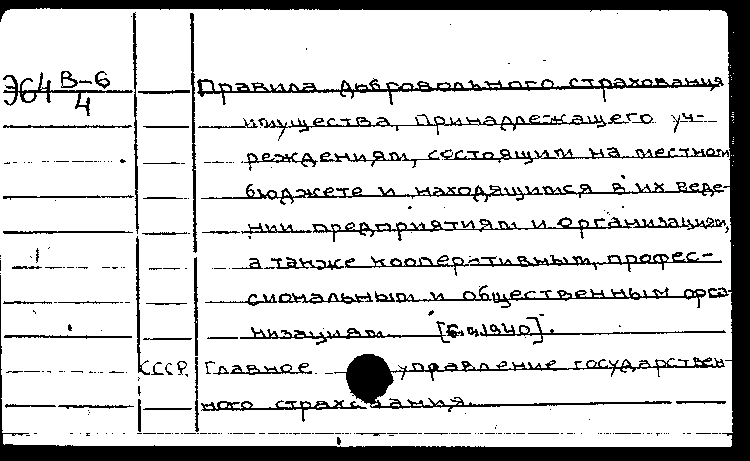 Э64 В-6/4
Правила добровольного страхования
имущества, принадлежащего уч-
реждениям, состоящим на местном
бюджете и находящимся в их веде-
нии предприятиям и организациям,
а также кооперативным, профес-
сиональным и общественным орга-
низациям. [Б.м, 1940].
СССР. Главное управление государствен-
ного страхования.